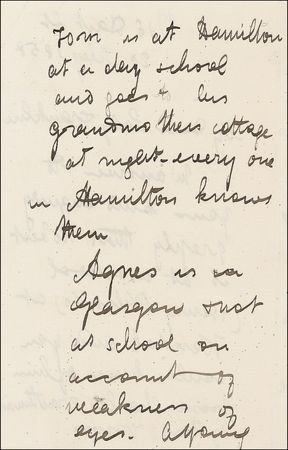 Tom is at Hamilton
at a day school
and goes to his
grandmothers cottage
at night - every one
in Hamilton knows
them
Agnes is in
Glasgow just
at school on
account of
weakness of
eyes. A young